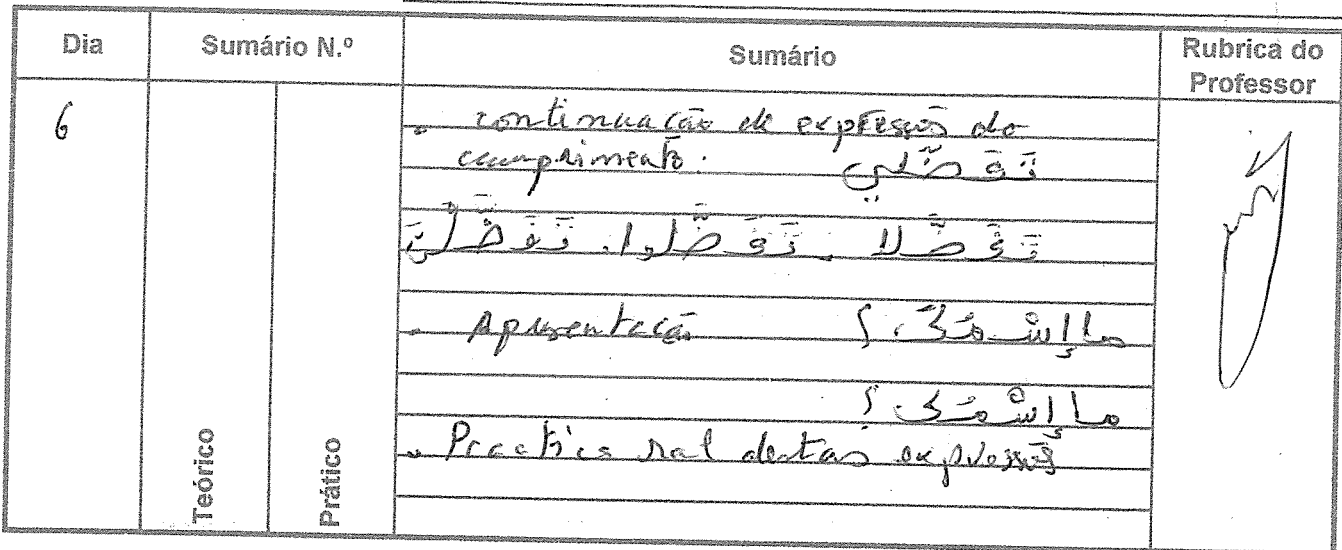 Dia
Sumário N.º
Sumário
Rubrica do
Professor
6
- continuação de expressões de
cumprimento. تَفَضَّلي
تَفَضَّلا . تَفَضَّلوا . تَفَضَّلْنَ
- Apresentação ما إسْمُكَ ؟
ما إسْمُكِ ؟
- Practica ral destas expressões
Teórico
Prático